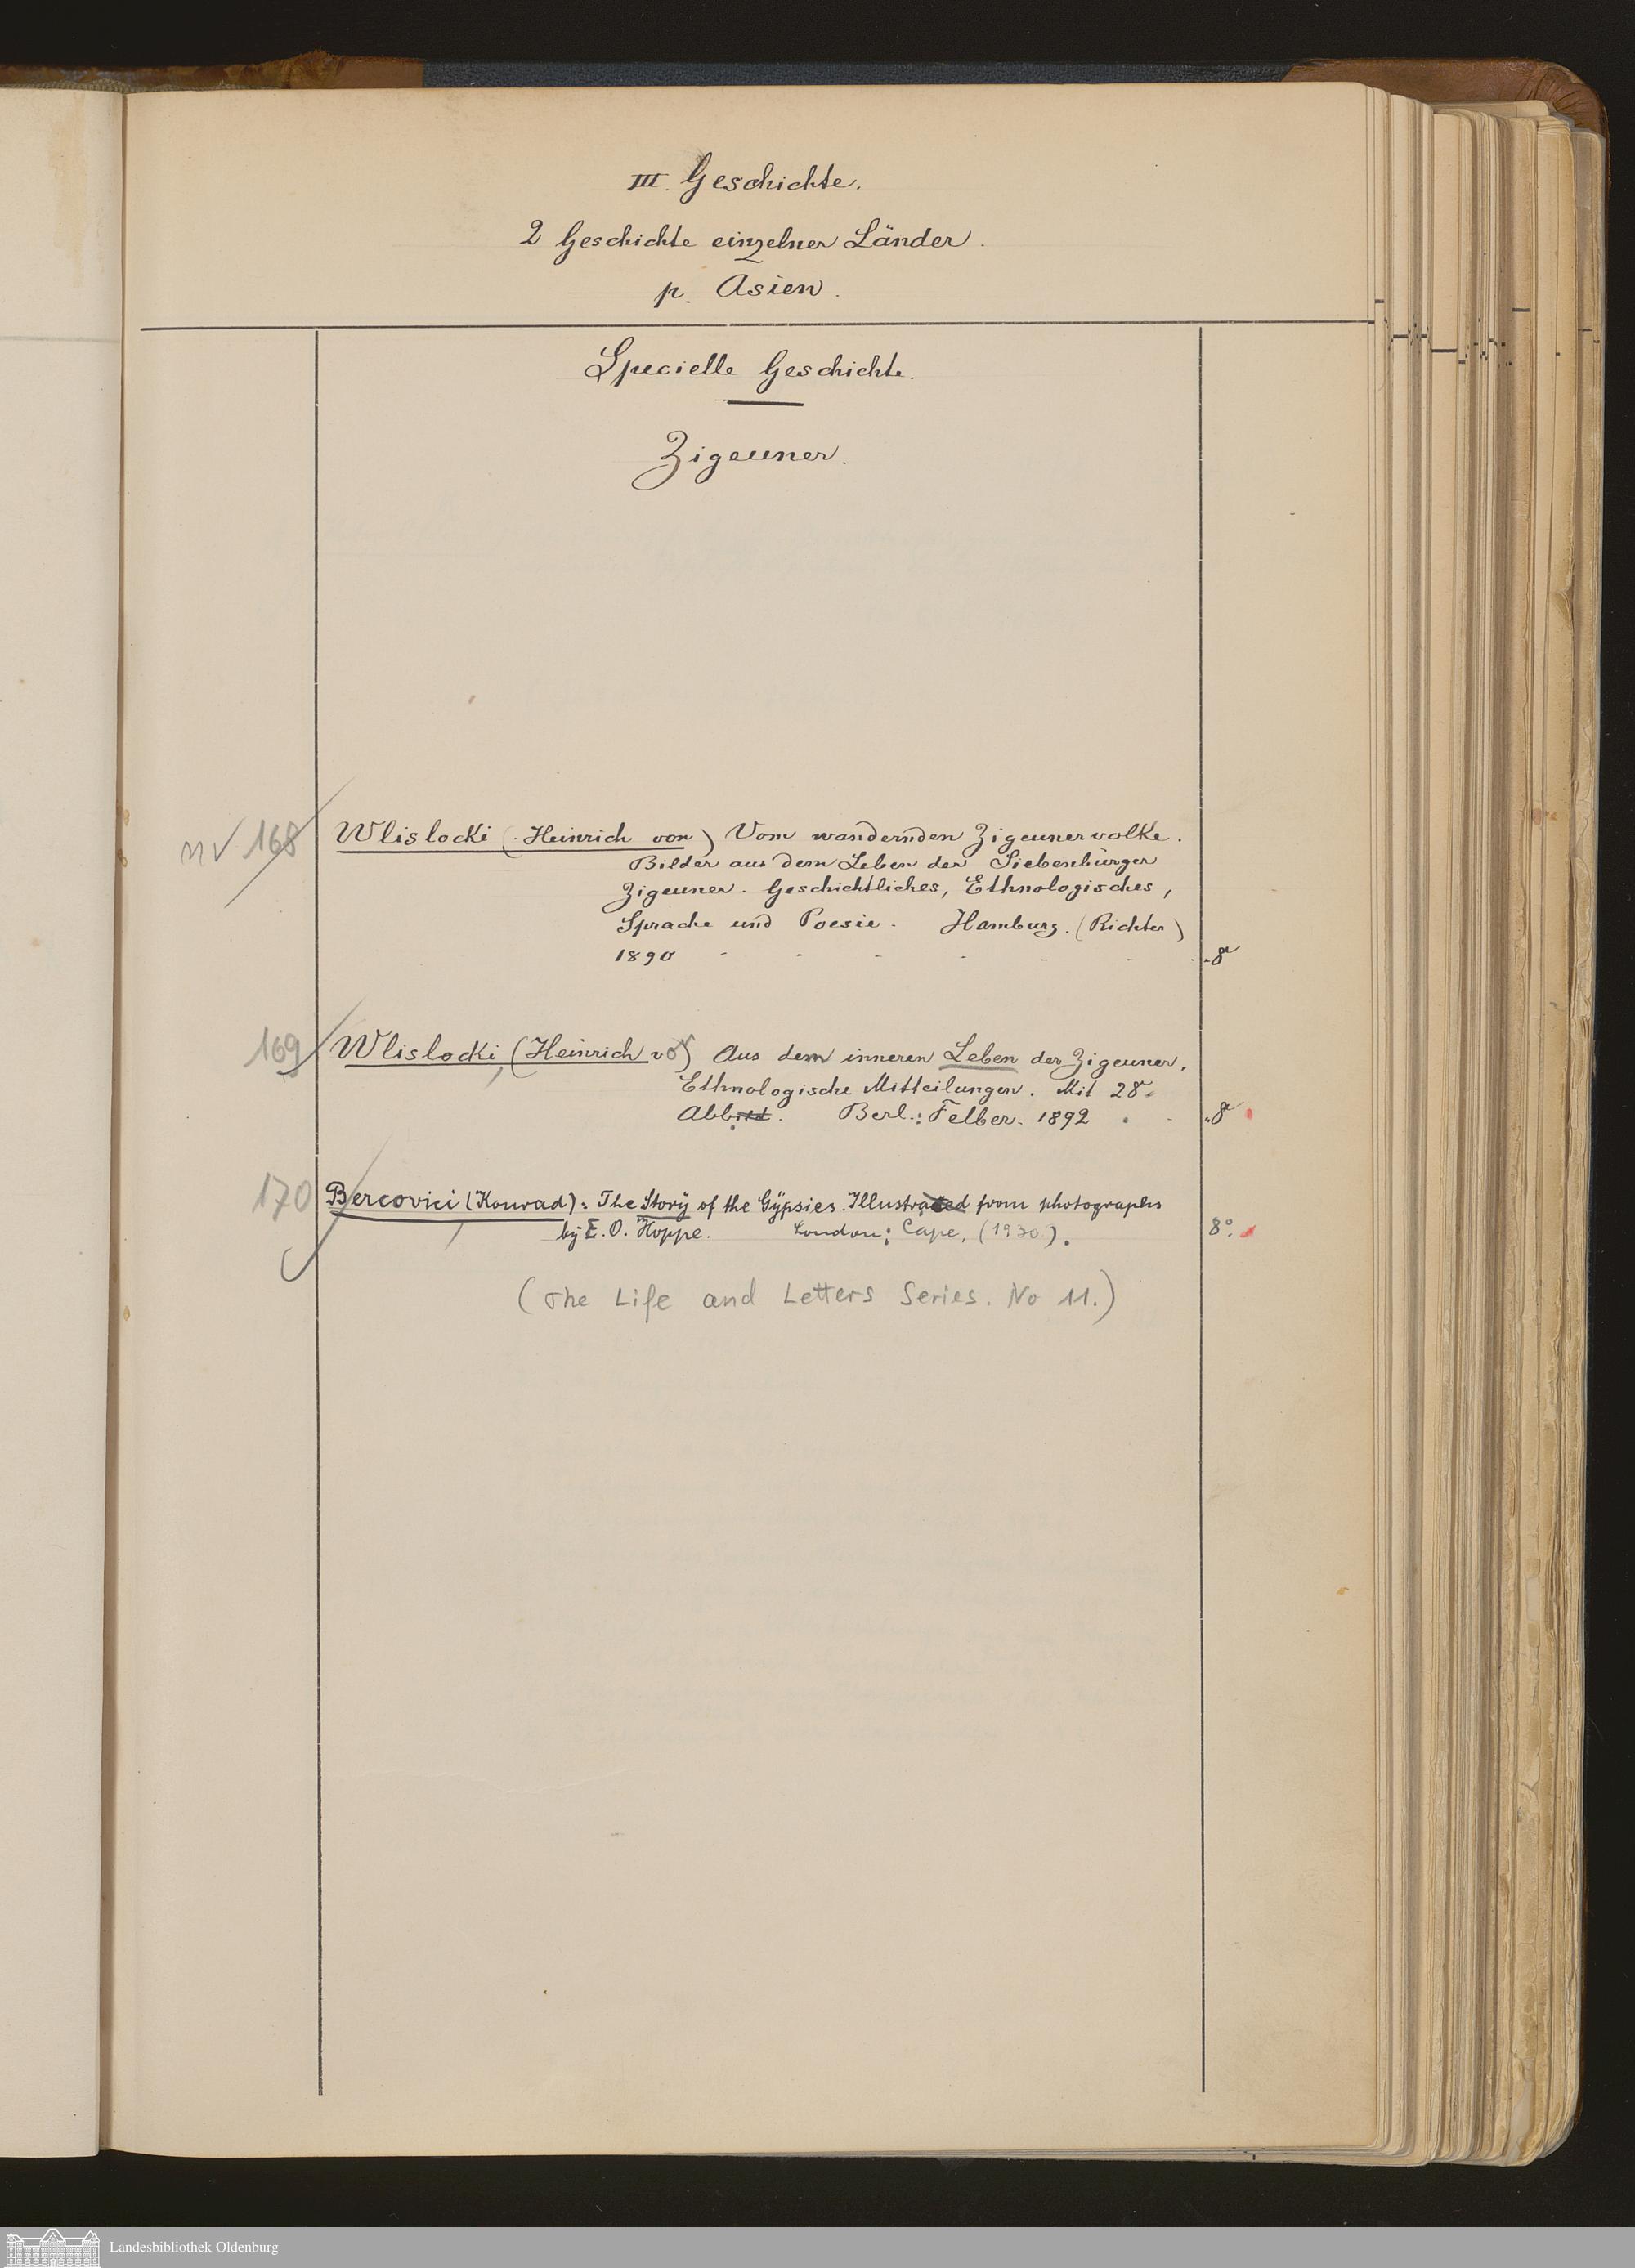 III. Geschichte.
2 Geschichte einzelner Länder.
p. Asien.
Specielle Geschichte.
Zigeuner.
nv 168 Wlislocki (Heinrich von) Vom wandernden Zigeunervolke.
Bilder aus dem Leben der Siebenbürger
Zigeuner. Geschichtliches, Ethnologisches,
Sprache und Poesie. Hamburg. (Richter)
1890 - - - - - - - 8°
169 Wlislocki, (Heinrich v) Aus dem inneren Leben der Zigeuner.
Ethnologische Mitteilungen. Mit 28
Abbild. Berl.: Felber. 1892 . - 8°
170 Bercovici (Konrad): The Story of the Gypsies. Illustrated from photographs
by E. O. Hoppe. London: Cape, (1930). 8°.
(The Life and Letters Series. No 11.)
Landesbibliothek Oldenburg